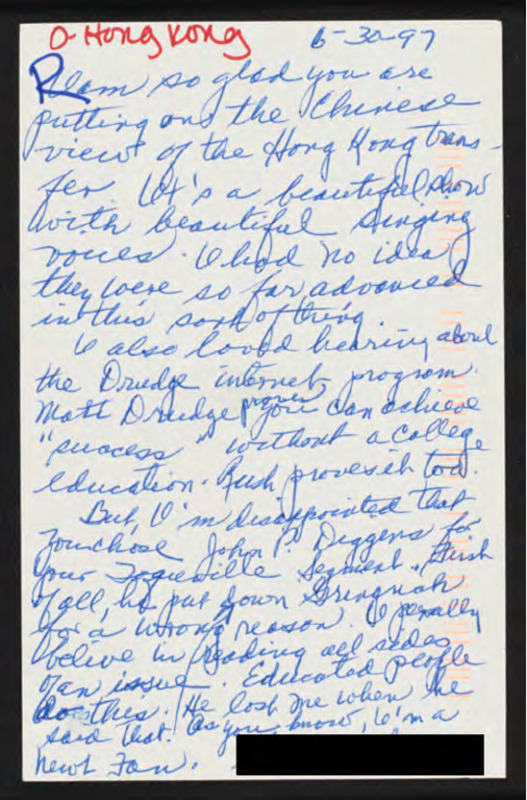 Hong Kong 6-30-97
I am so glad you are
putting on the Chinese
view of the Hong Kong trans-
fer. It's a beautiful show
with beautiful singing
voices. I had no idea
they were so far advanced
in this sort of thing.
I also loved hearing about
the Drudge internet program.
Matt Drudge proves you can achieve
"success" without a college
education. Rush proves it too.
But, I'm disappointed that
you chose John P. Diggens for
your Toqueville segment. First
of all, he put down Gringrich
for a wrong reason. I
believe in reading all sides
of an issue. Educated people
do this. He lost me when he
said that. As you know, I'm a
Newt Fan.